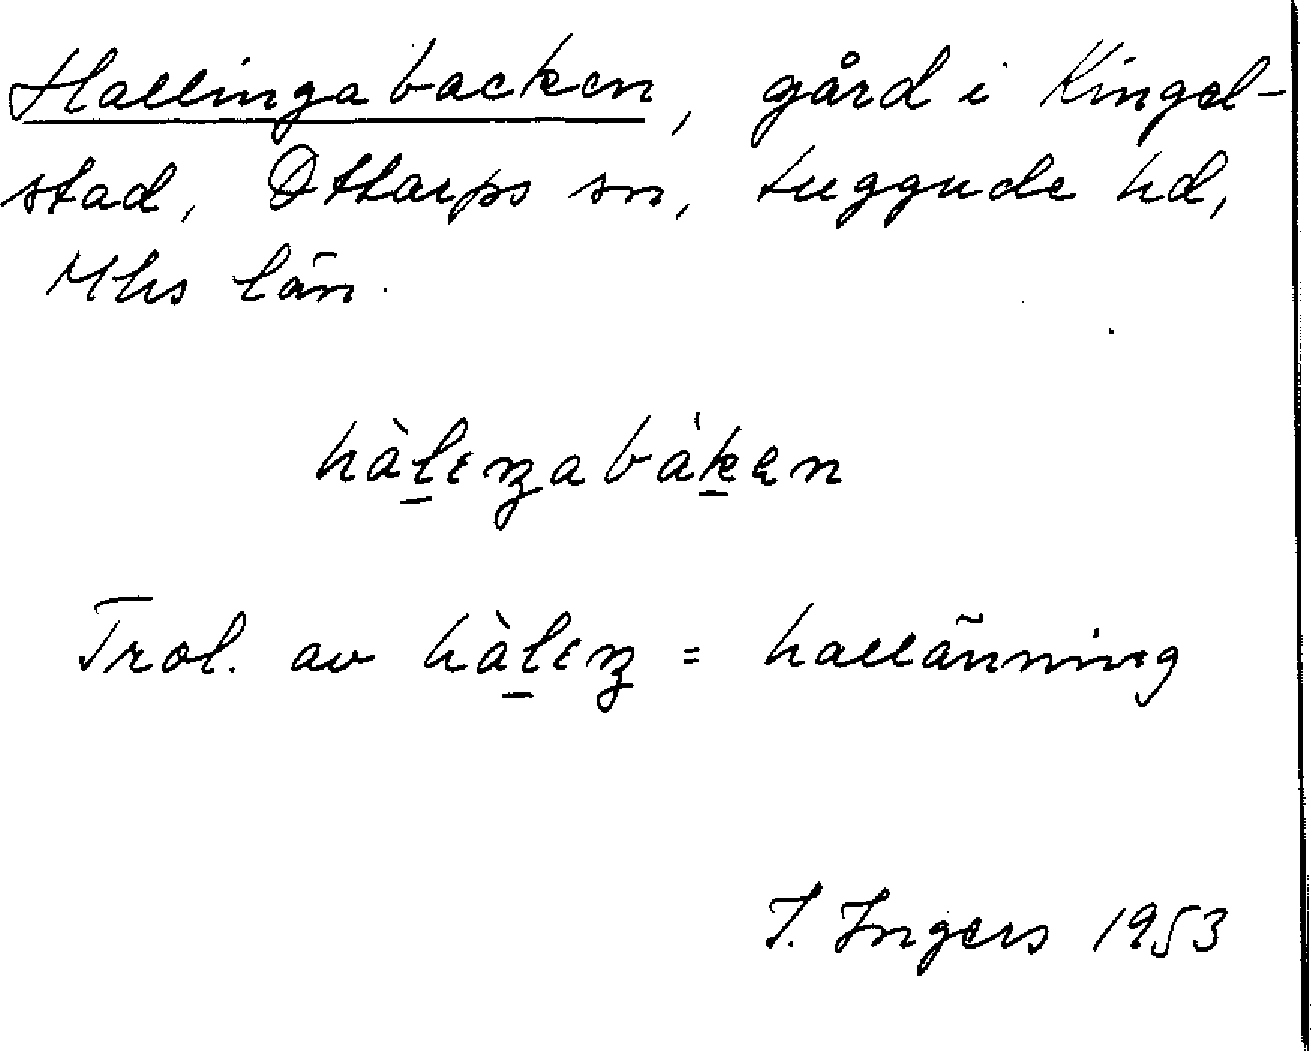 Hallingabacken, gård i Kingel-
stad, Ottarps sn, Luggude hd,
Mhs län.
hàl̠ıŋabák̠ən
Trol. av hàl̠ıŋ = hallänning
I. Ingers 1953